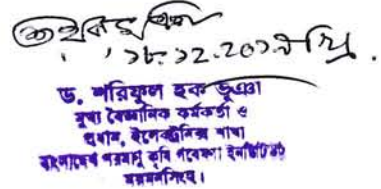 ১৮.১২.২০১৭ খ্রি.
ড. শরিফুল হক ভূঞা
মুখ্য বৈজ্ঞানিক কর্মকর্তা ও
প্রধান, ইলেকট্রনিক্স শাখা
বাংলাদেশ পরমাণু কৃষি গবেষণা ইনস্টিটিউট
ময়মনসিংহ।